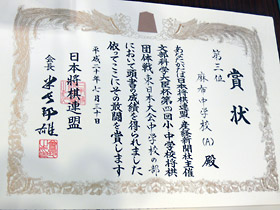 賞状
第三位
麻布中学校(A)殿
あなたがたは日本将棋連盟、産経新聞社主催
文部科学大臣杯第四回小・中学校将棋
団体戦東日本大会中学校の部
において頭書の成績を得られました
依ってここにその功績を賞します
平成二十年七月二十日
日本将棋連盟
会長 米長邦雄